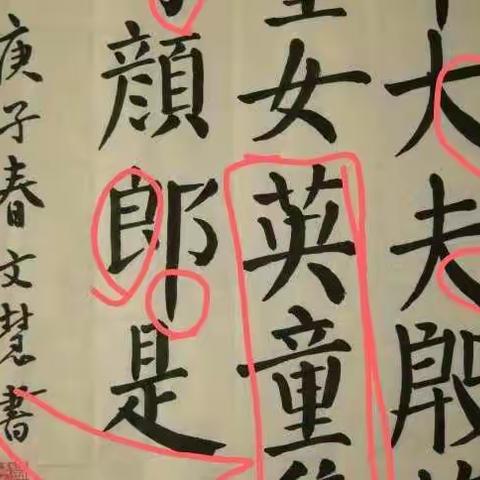 大夫殷
女英童
顏郎是
庚子春文慧書